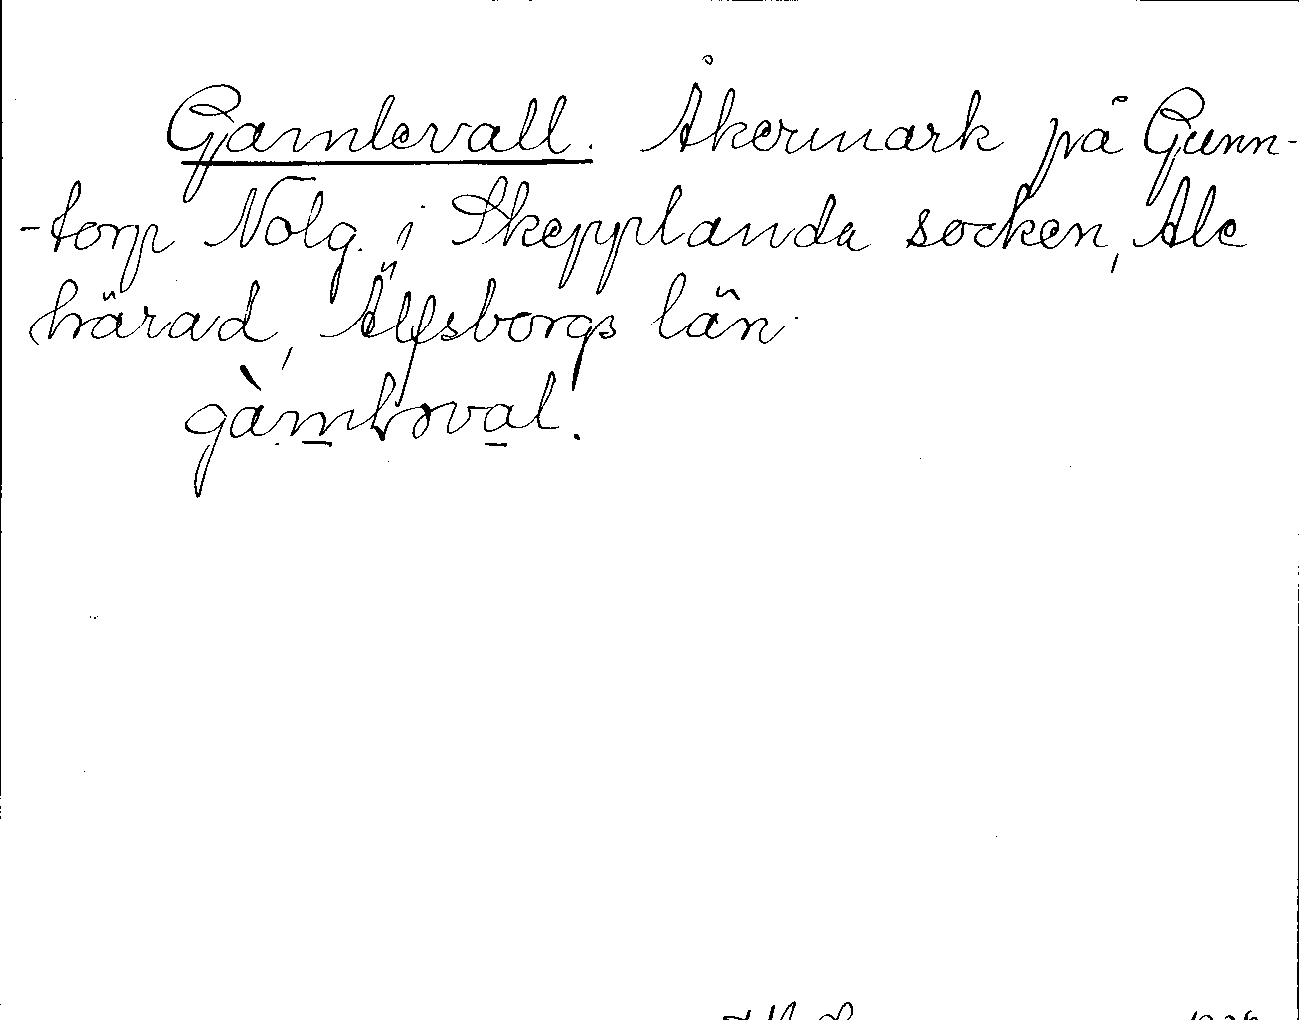 Gamlevall. Åkermark på Gunn-
-torp Nolg. i Skepplanda socken, Ale
härad, Älfsborgs län
gàmləval.